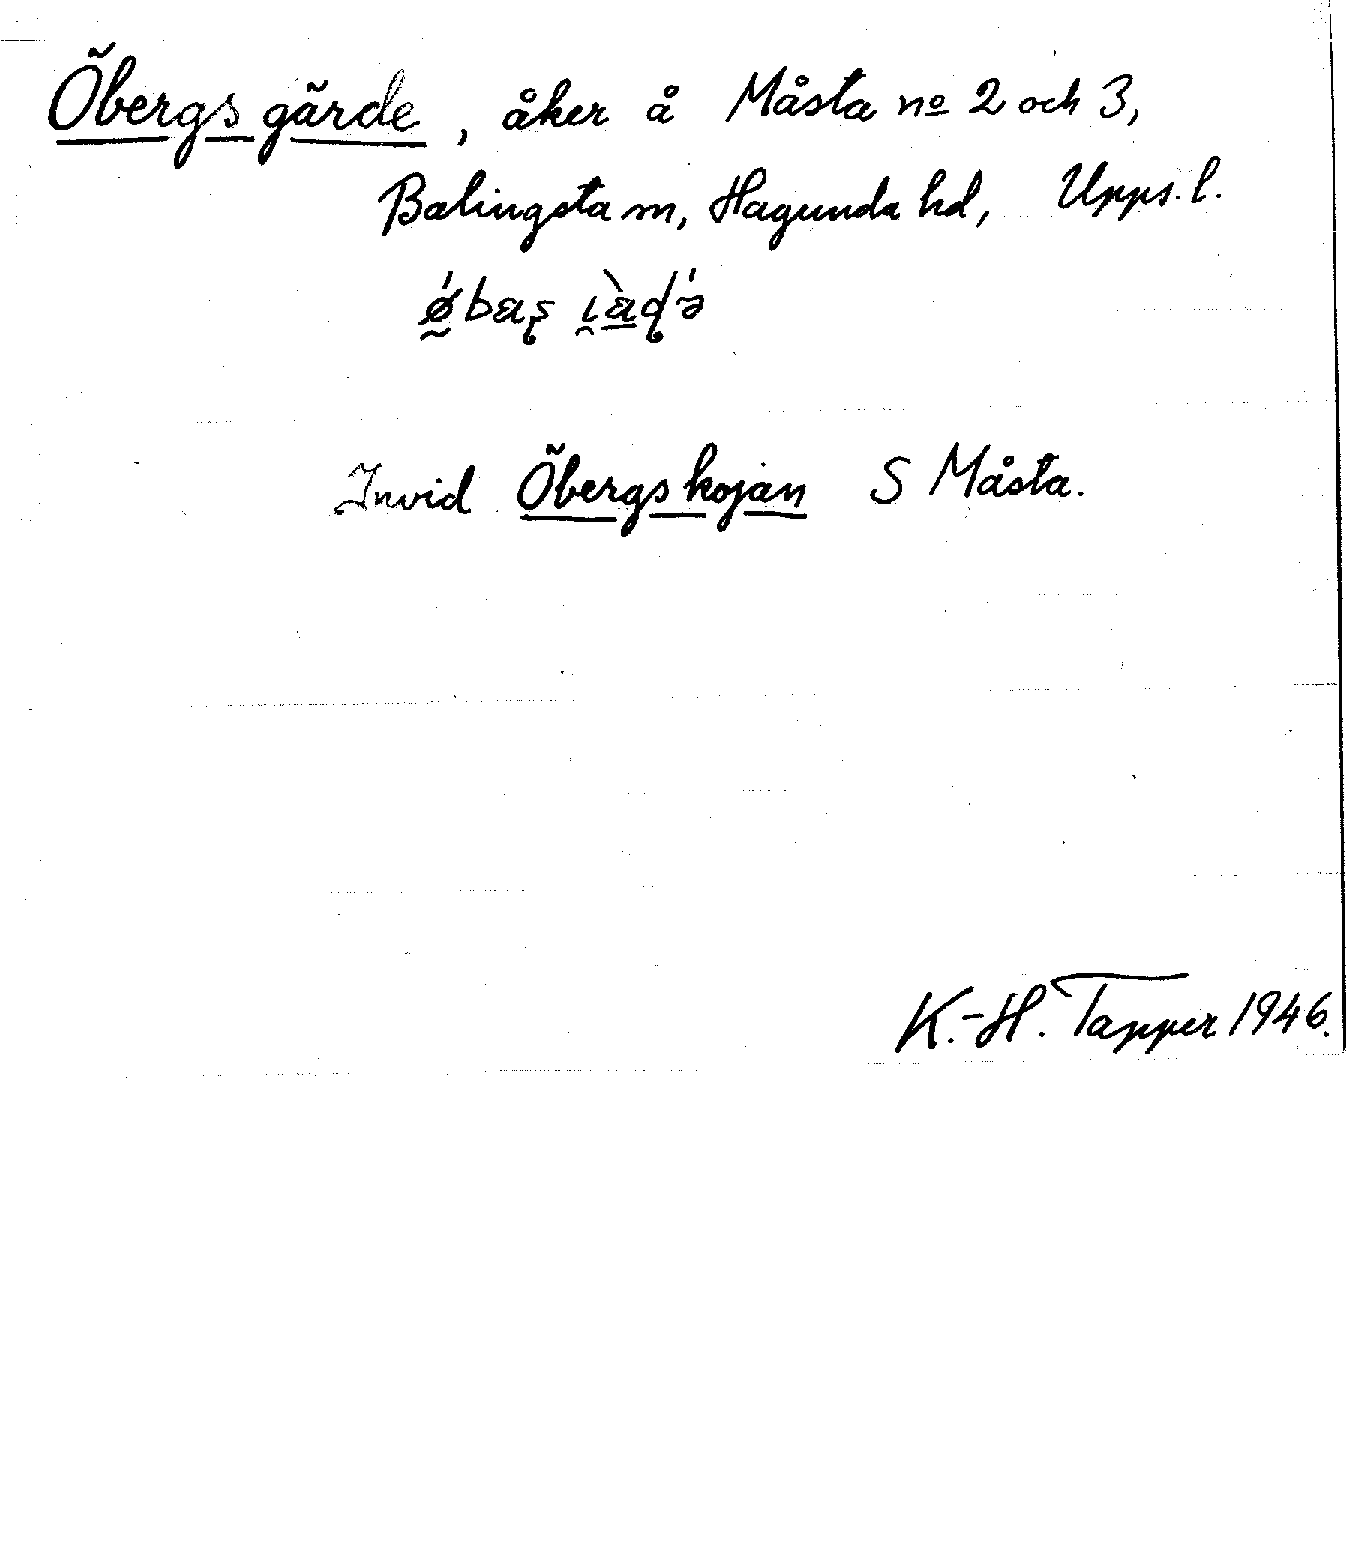 Öbergs gärde, åker å Måsta no 2 och 3,
Balingsta sn, Hagunda hd, Upps. l.
Invid Öbergskojan S Måsta.
K.-H. Tapper 1946.